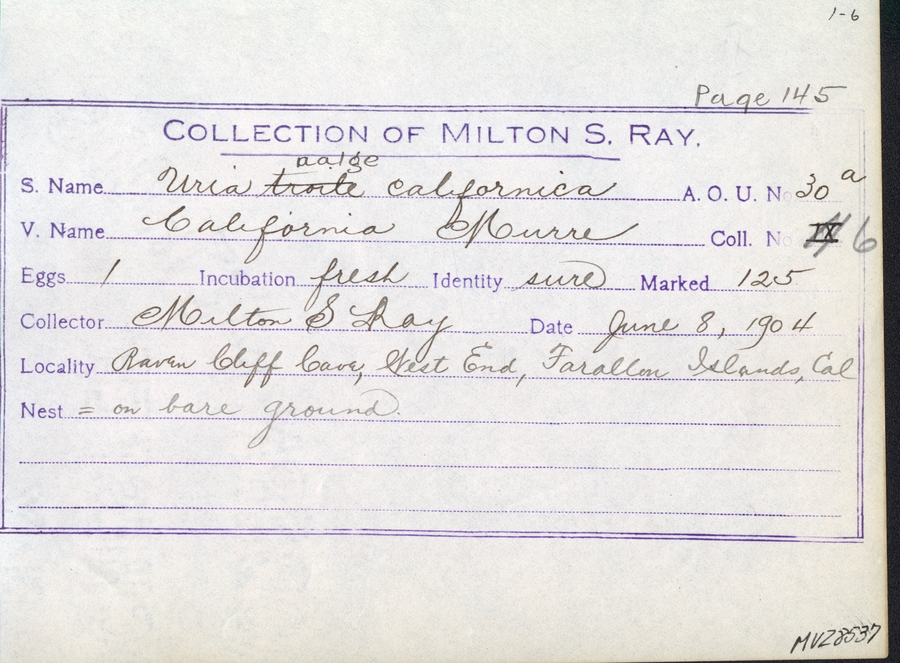 1-6
Page 145
COLLECTION OF MILTON S. RAY.
aalge
S. Name Uria troile californica A. O. U. No 30 a
V. Name California Murre Coll. No IX # 6
Eggs 1 Incubation fresh Identity sure Marked 125
Collector Milton S Ray Date June 8, 1904
Locality Raven Cliff Cave, West End, Farallon Islands, Cal
Nest = on bare ground.
MVZ8537